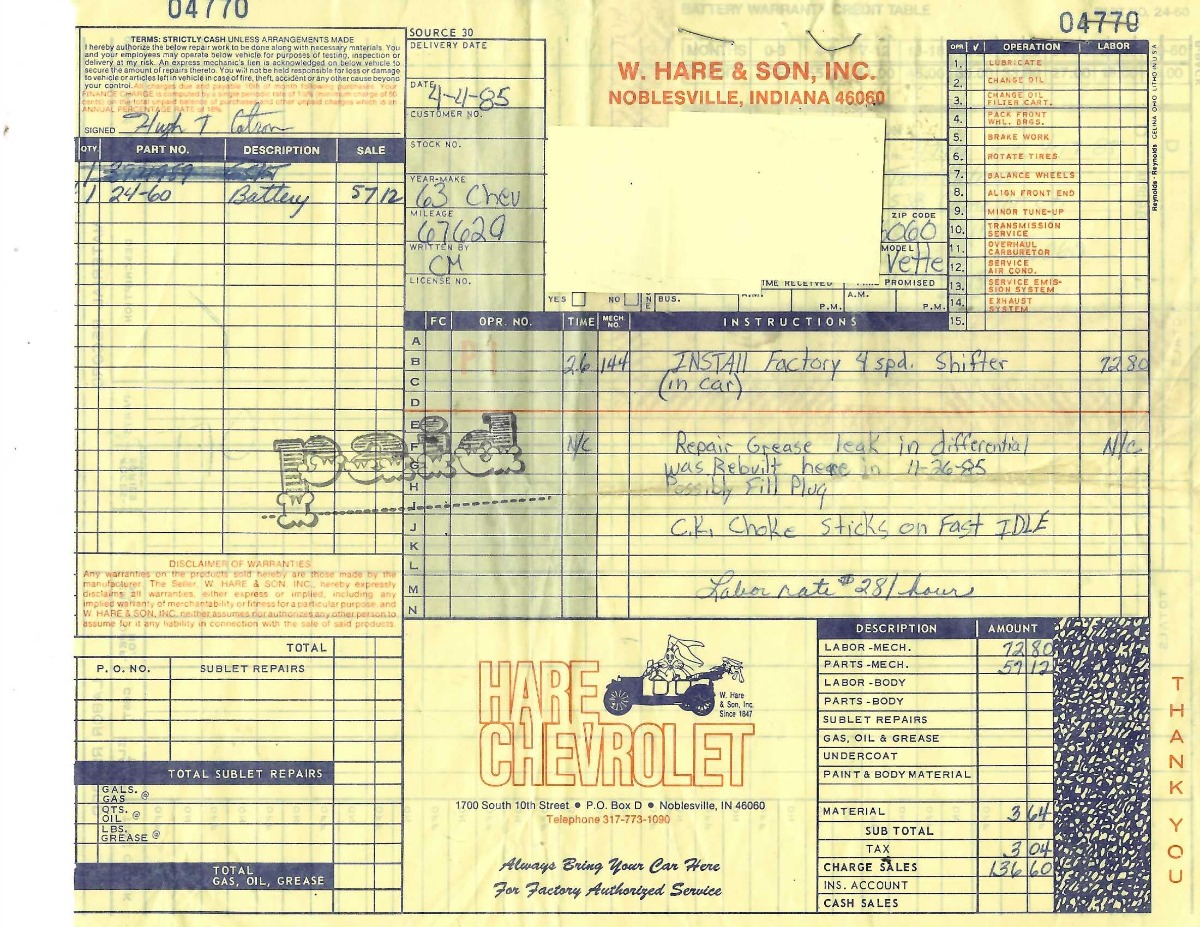 04770
04770
TERMS: STRICTLY CASH UNLESS ARRANGEMENTS MADE
I hereby authorize the below repair work to be done along with necessary materials. You
and your employees may operate below vehicle for purposes of testing, inspection or
delivery at my risk. An express mechanic's lien is acknowledged on below vehicle to
secure the amount of repairs thereto. You will not be held responsible for loss or damage
to vehicle or articles left in vehicle in case of fire, theft, accident or any other cause beyond
your control. All charges due and payable 10th of month following purchases. Your
FINANCE CHARGE is computed by a single periodic rate of 1.5% (minimum charge of 50
cents) on the total unpaid balance of purchases and other unpaid charges which is an
ANNUAL PERCENTAGE RATE of 18%.
SIGNED Hugh T Catron
QTY. PART NO. DESCRIPTION SALE
1
1 24-60 Battery 57 12
SOURCE 30
DELIVERY DATE
DATE 4-4-85
CUSTOMER NO.
STOCK NO.
YEAR-MAKE
63 Chev
MILEAGE
67629
WRITTEN BY
CM
LICENSE NO.
BATTERY WARRANTY CREDIT TABLE
NO. 24-60
W. HARE & SON, INC.
NOBLESVILLE, INDIANA 46060
ZIP CODE
6060
MODEL
Vette
TIME RECEIVED PROMISED
YES NO BUS. A.M. P.M. A.M. P.M.
OPR. √ OPERATION LABOR
1. LUBRICATE
2. CHANGE OIL
3. CHANGE OIL FILTER CART.
4. PACK FRONT WHL. BRGS.
5. BRAKE WORK
6. ROTATE TIRES
7. BALANCE WHEELS
8. ALIGN FRONT END
9. MINOR TUNE-UP
10. TRANSMISSION SERVICE
11. OVERHAUL CARBURETOR
12. SERVICE AIR COND.
13. SERVICE EMISSION SYSTEM
14. EXHAUST SYSTEM
15.
Reynolds + Reynolds CELINA OHIO LITHO IN U S A
FC OPR. NO. TIME MECH. NO. INSTRUCTIONS
A
B 2.6 144 INSTALL Factory 4 spd. Shifter 72 80
C (in car)
D
E
F N/C Repair Grease leak in differential N/C
G was Rebuilt here in 11-26-85
H Possibly Fill Plug
I
J C.K. Choke Sticks on Fast IDLE
K
L
M Labor rate $28/hour
N
Paid
DISCLAIMER OF WARRANTIES
Any warranties on the products sold hereby are those made by the
manufacturer. The Seller, W. HARE & SON INC., hereby expressly
disclaims all warranties, either express or implied, including any
implied warranty of merchantability or fitness for a particular purpose, and
W. HARE & SON, INC. neither assumes nor authorizes any other person to
assume for it any liability in connection with the sale of said products.
TOTAL
P. O. NO. SUBLET REPAIRS
TOTAL SUBLET REPAIRS
GALS. GAS @
QTS. OIL @
LBS. GREASE @
TOTAL
GAS, OIL, GREASE
HARE
CHEVROLET
W. Hare
& Son, Inc.
Since 1847
1700 South 10th Street • P.O. Box D • Noblesville, IN 46060
Telephone 317-773-1090
Always Bring Your Car Here
For Factory Authorized Service
DESCRIPTION AMOUNT
LABOR-MECH. 72 80
PARTS-MECH. 57 12
LABOR-BODY
PARTS-BODY
SUBLET REPAIRS
GAS, OIL & GREASE
UNDERCOAT
PAINT & BODY MATERIAL
MATERIAL 3 64
SUB TOTAL
TAX 3 04
CHARGE SALES 136 60
INS. ACCOUNT
CASH SALES
THANK YOU